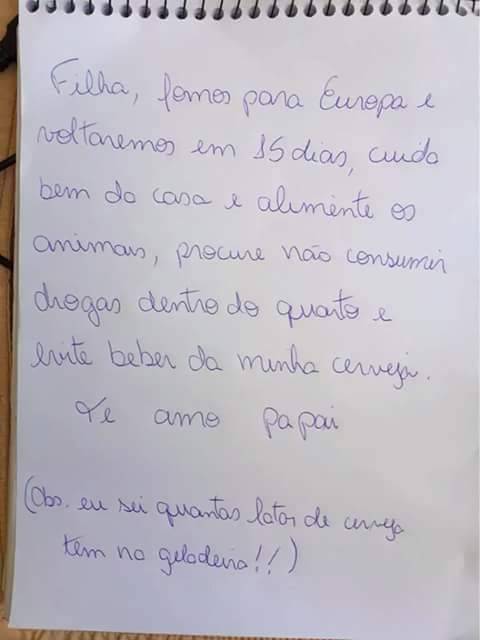 Filha, fomos para Europa e
voltaremos em 15 dias, cuida
bem da casa e alimente os
animais, procure não consumir
drogas dentro do quarto e
evite beber da minha cerveja.
Te amo papai
(Obs. eu sei quantas latas de cerveja
tem na geladeira!!)